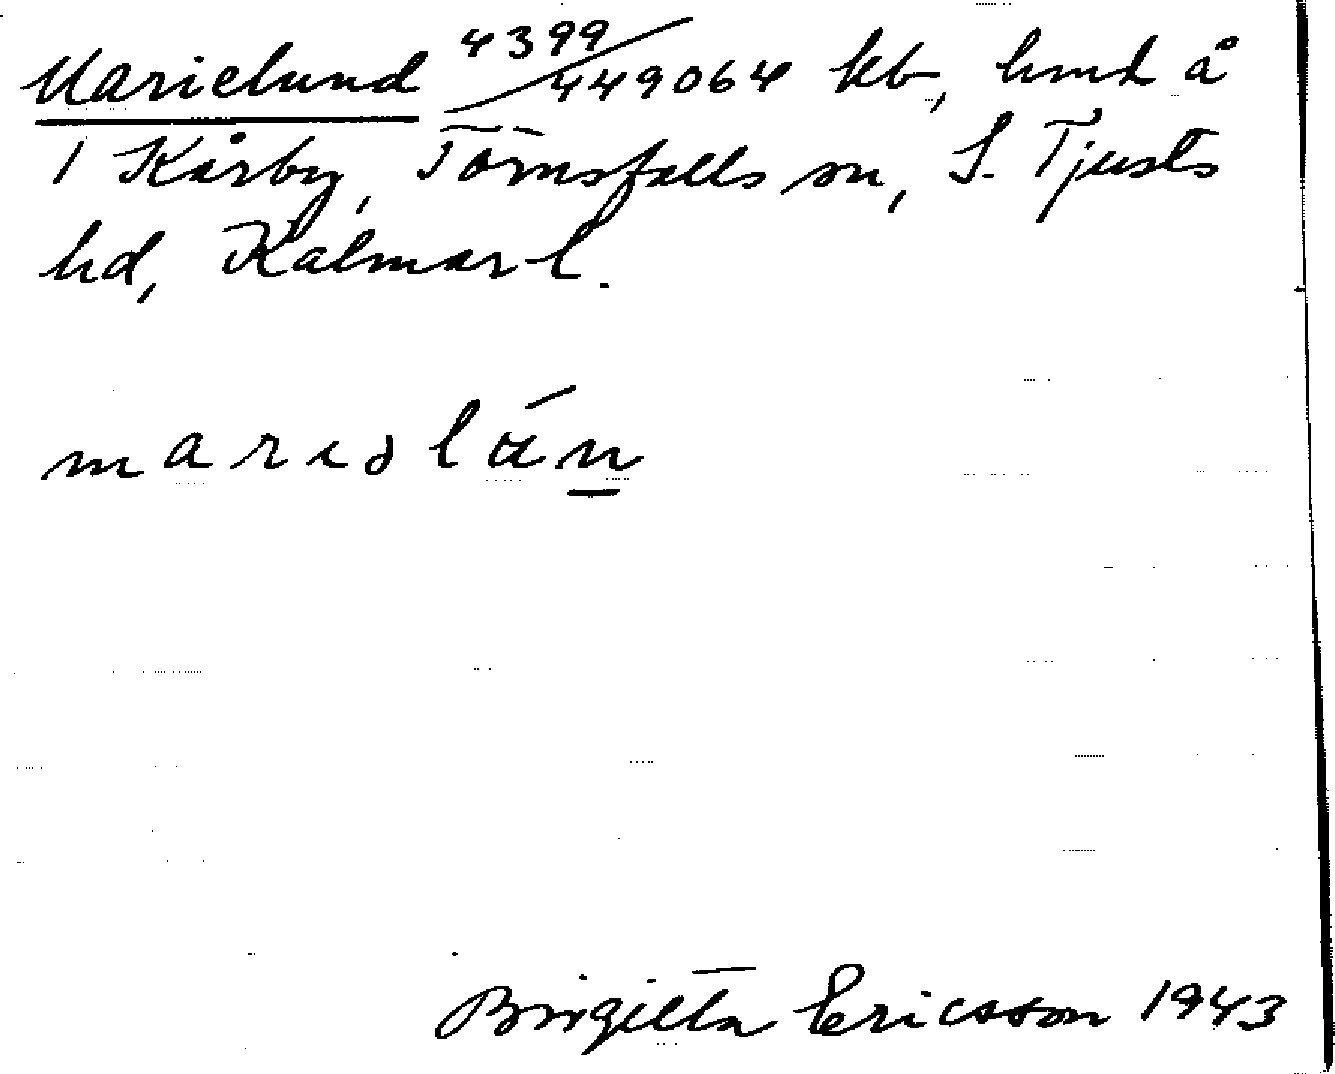 Marielund 4399/449064 kb, hmd å
1 Kårby, Törnsfalls sn, S. Tjusts
hd, Kalmar l.
marıəlán
Birgitta Ericsson 1943